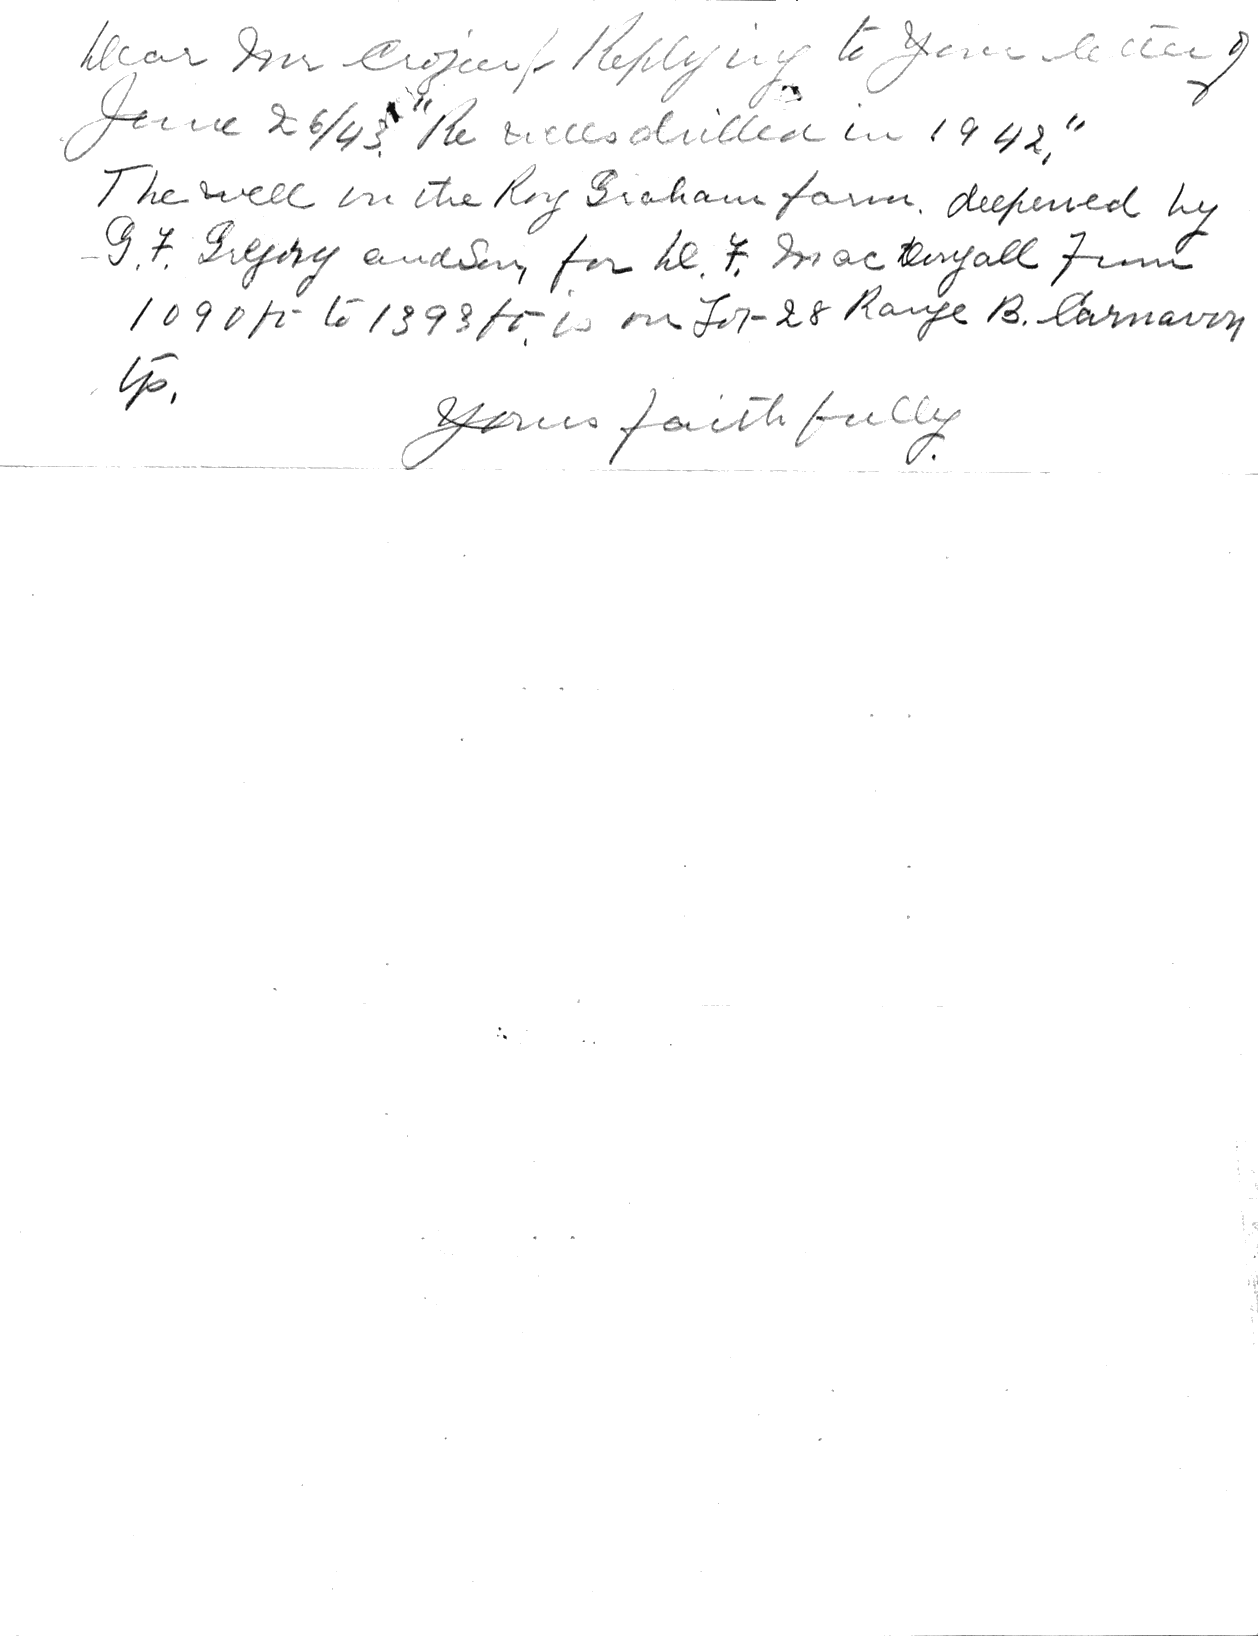 Dear Mr Crozier/- Replying to Your letter of
June 26/43. "Re wells drilled in 1942."
The well on the Roy Graham farm. deepened by
G. F. Gregory and Son, for D. F. MacDougall From
1090 ft to 1393 ft. is on Lot-28 Range B. Carnavon
tp.
Yours faithfully.